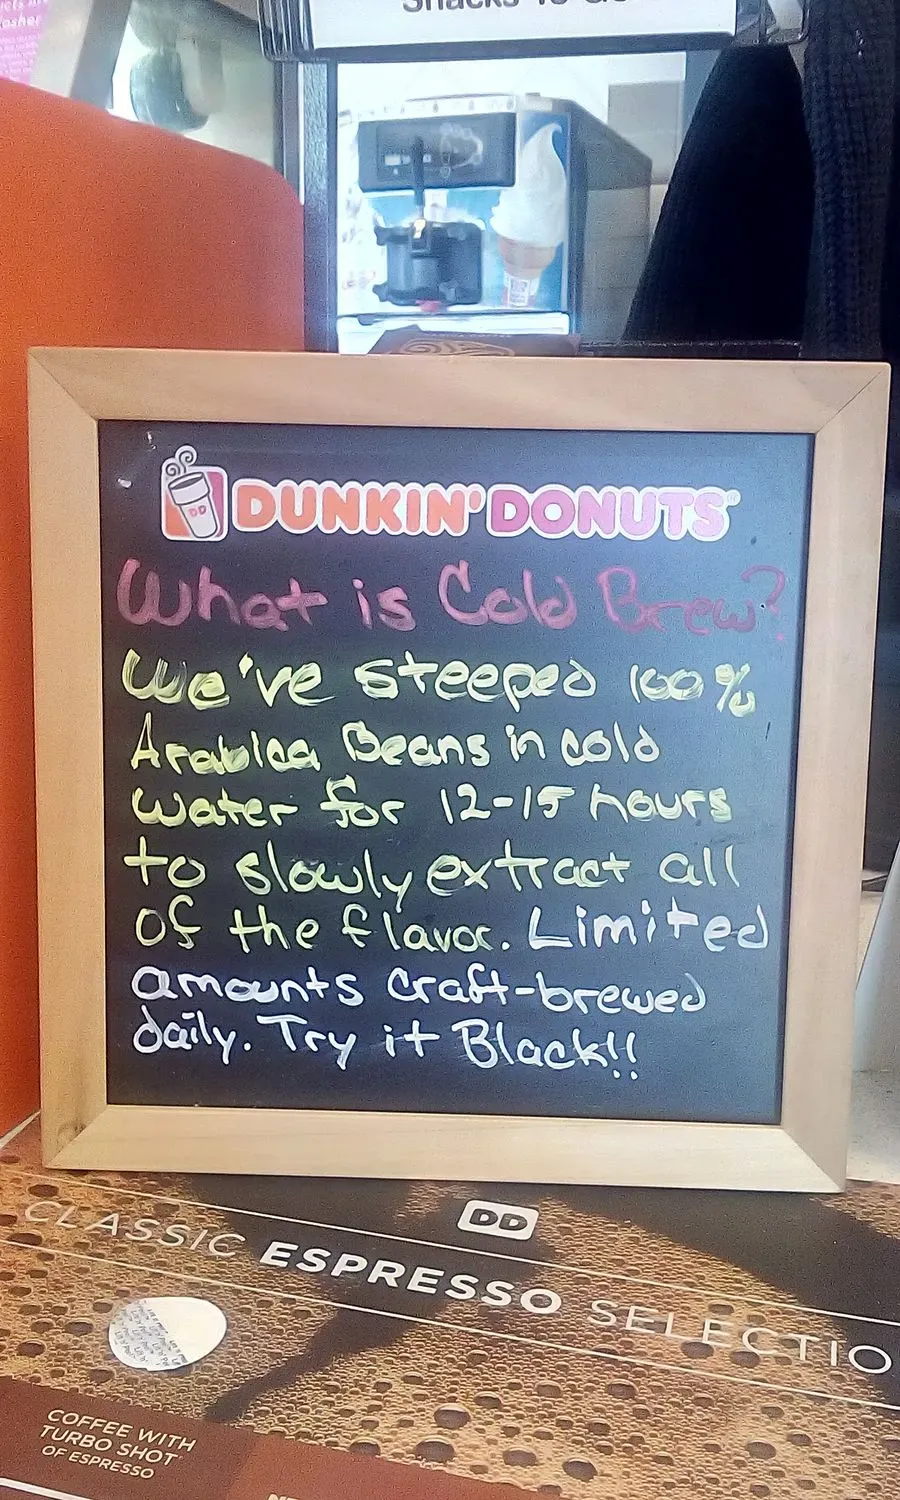 Snacks To Go
DUNKIN' DONUTS
What is Cold Brew?
We've steeped 100%
Arabica Beans in cold
water for 12-15 hours
to slowly extract all
of the flavor. Limited
amounts craft-brewed
daily. Try it Black!!
DD
CLASSIC ESPRESSO SELECTIO
COFFEE WITH
TURBO SHOT
OF ESPRESSO